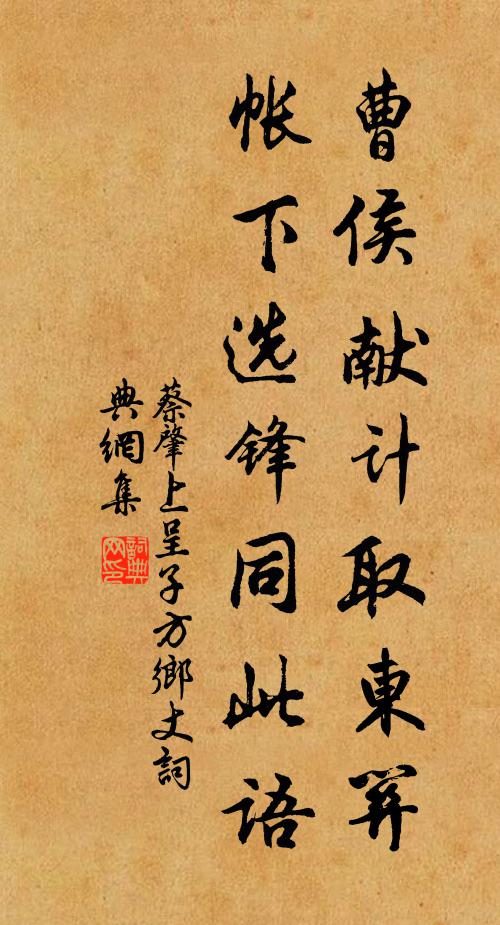 曹侯献计取東關
帐下选锋同此语
蔡肇上呈子方鄉丈詞
典網集
詞典
网印